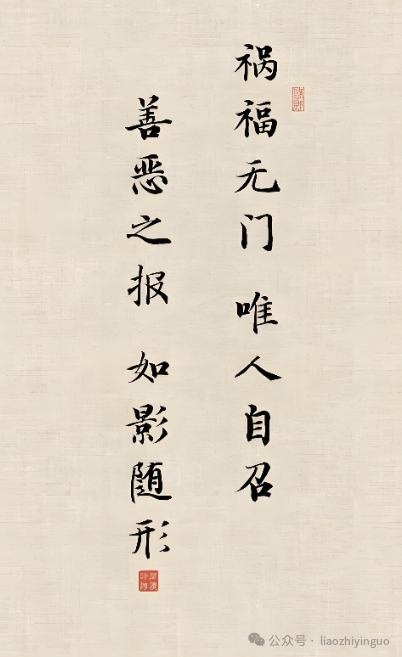 祸福无门 唯人自召
善恶之报 如影随形
公众号 · liaozhiyinguo